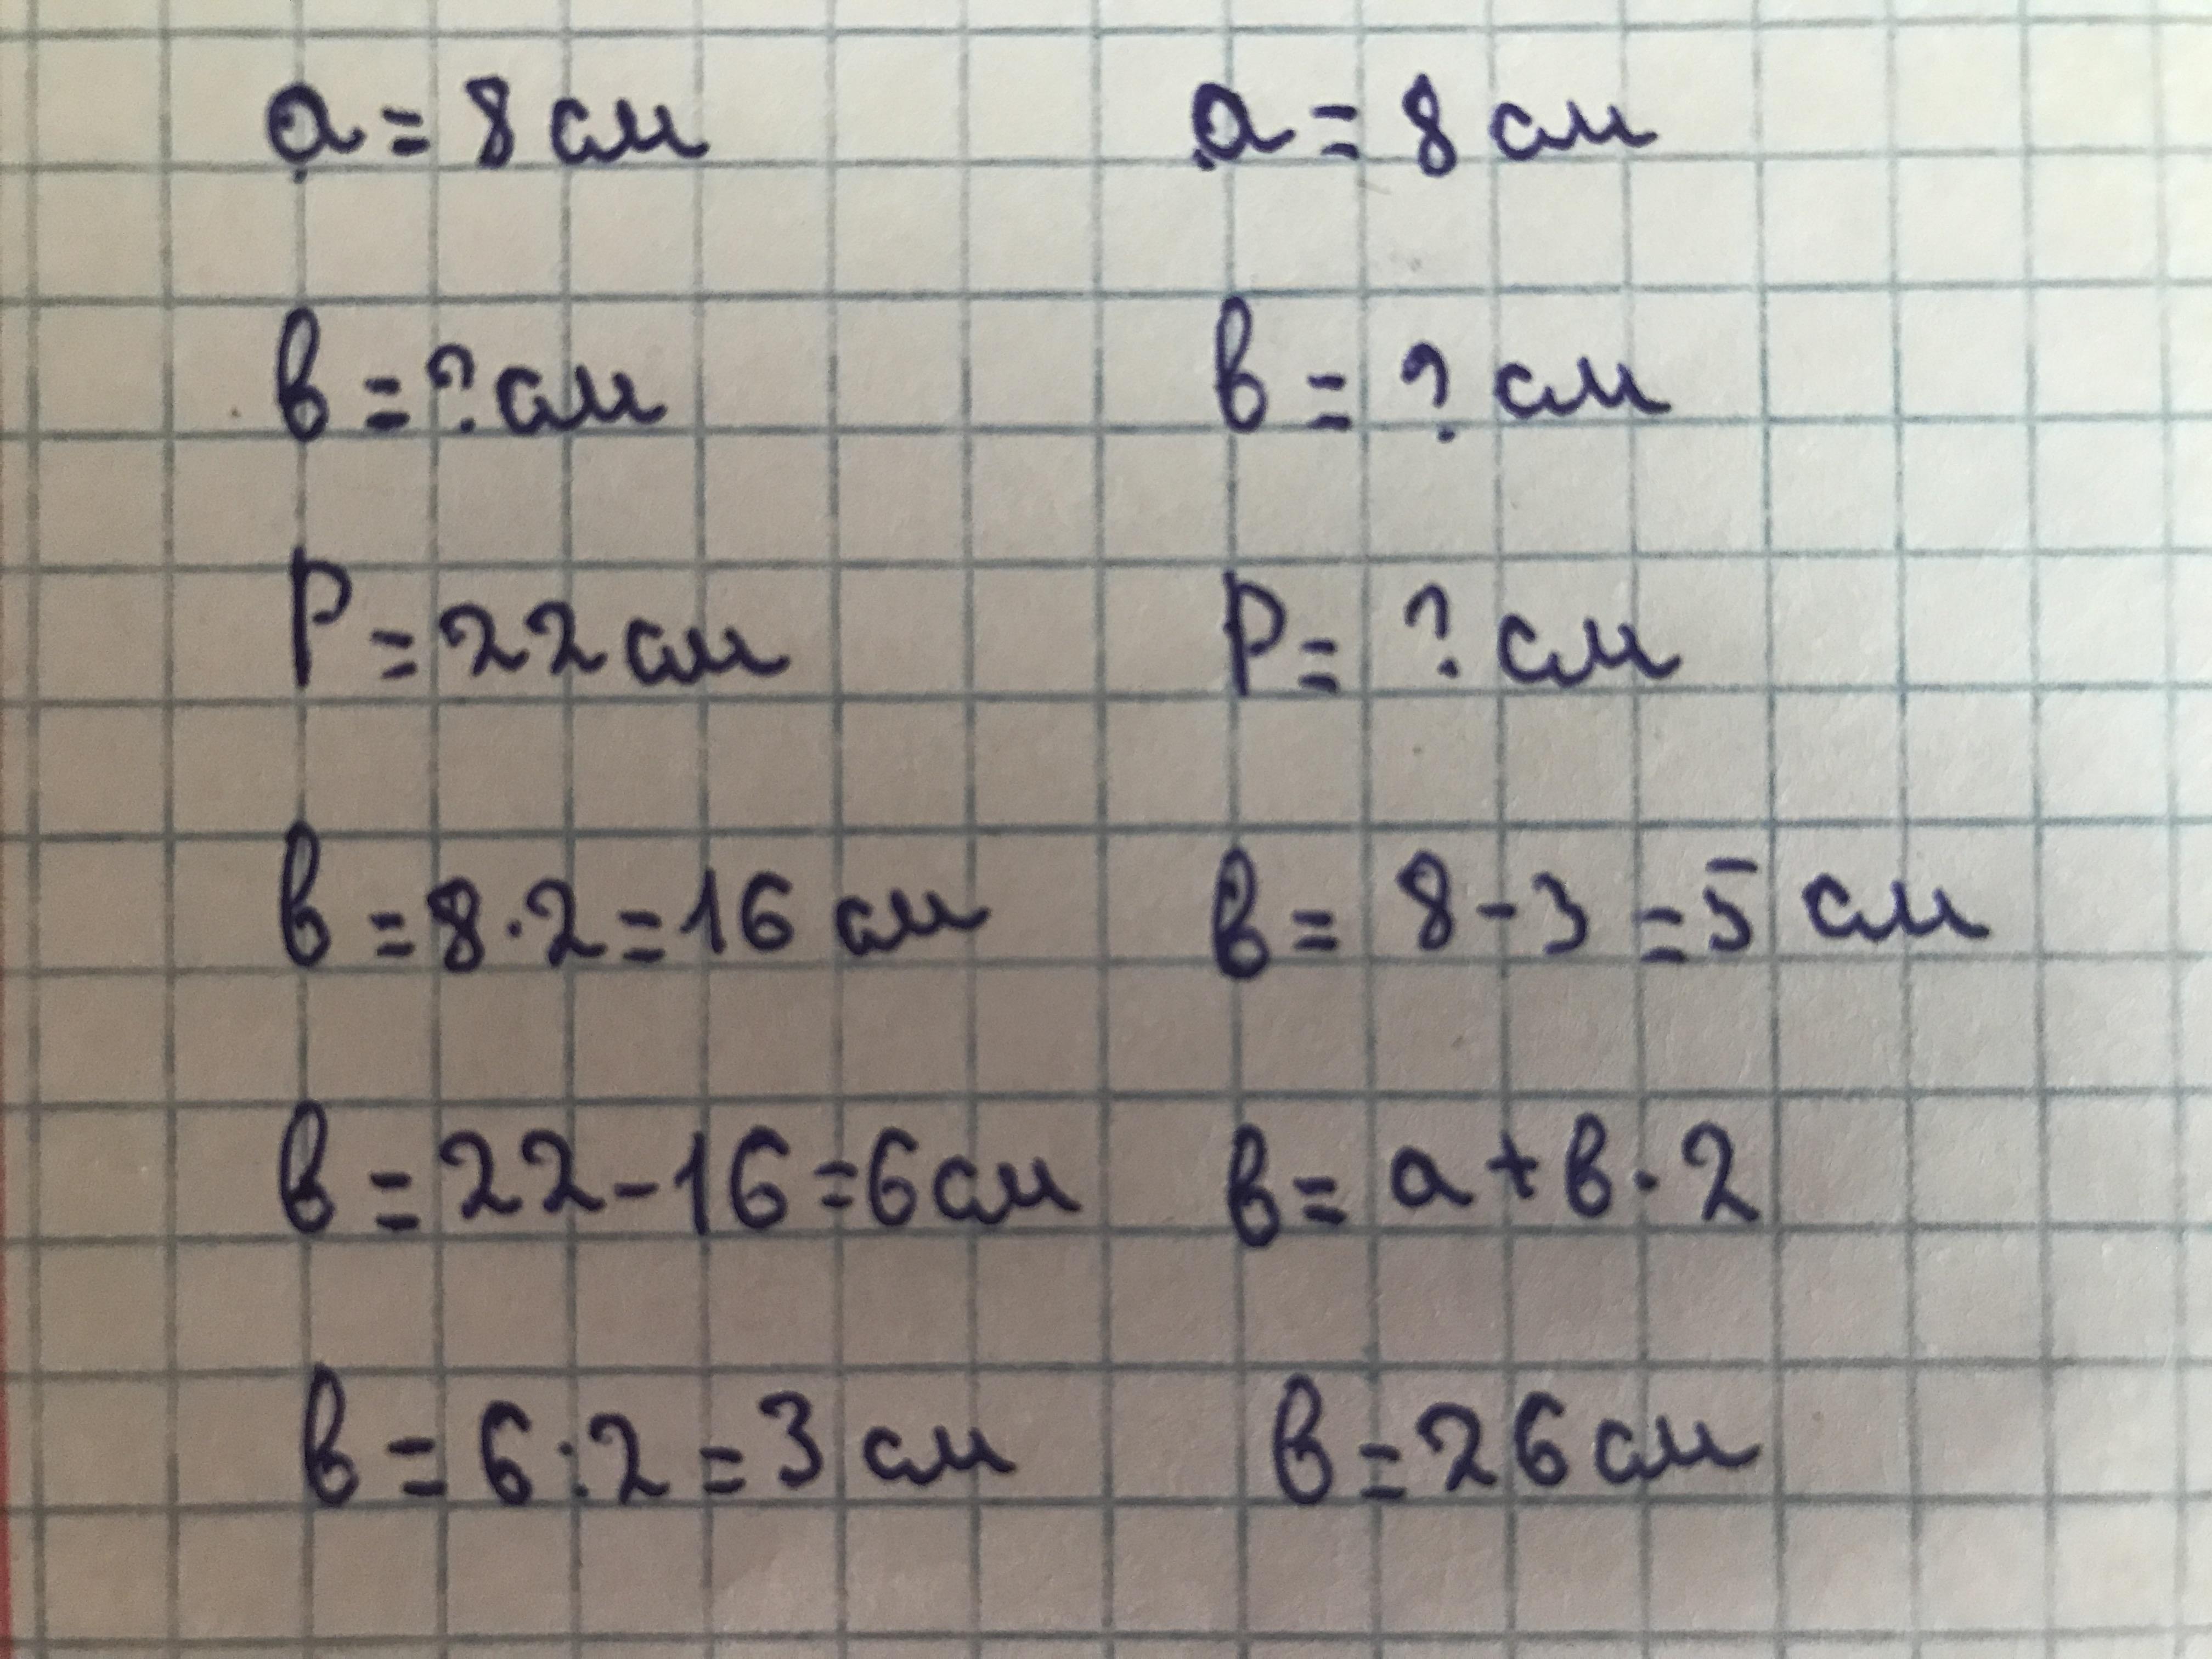 а = 8 см
в = ? см
Р = 22 см
в = 8 · 2 = 16 см
в = 22 - 16 = 6 см
в = 6 : 2 = 3 см
а = 8 см
в = ? см
Р = ? см
в = 8 - 3 = 5 см
в = а + в · 2
в = 26 см